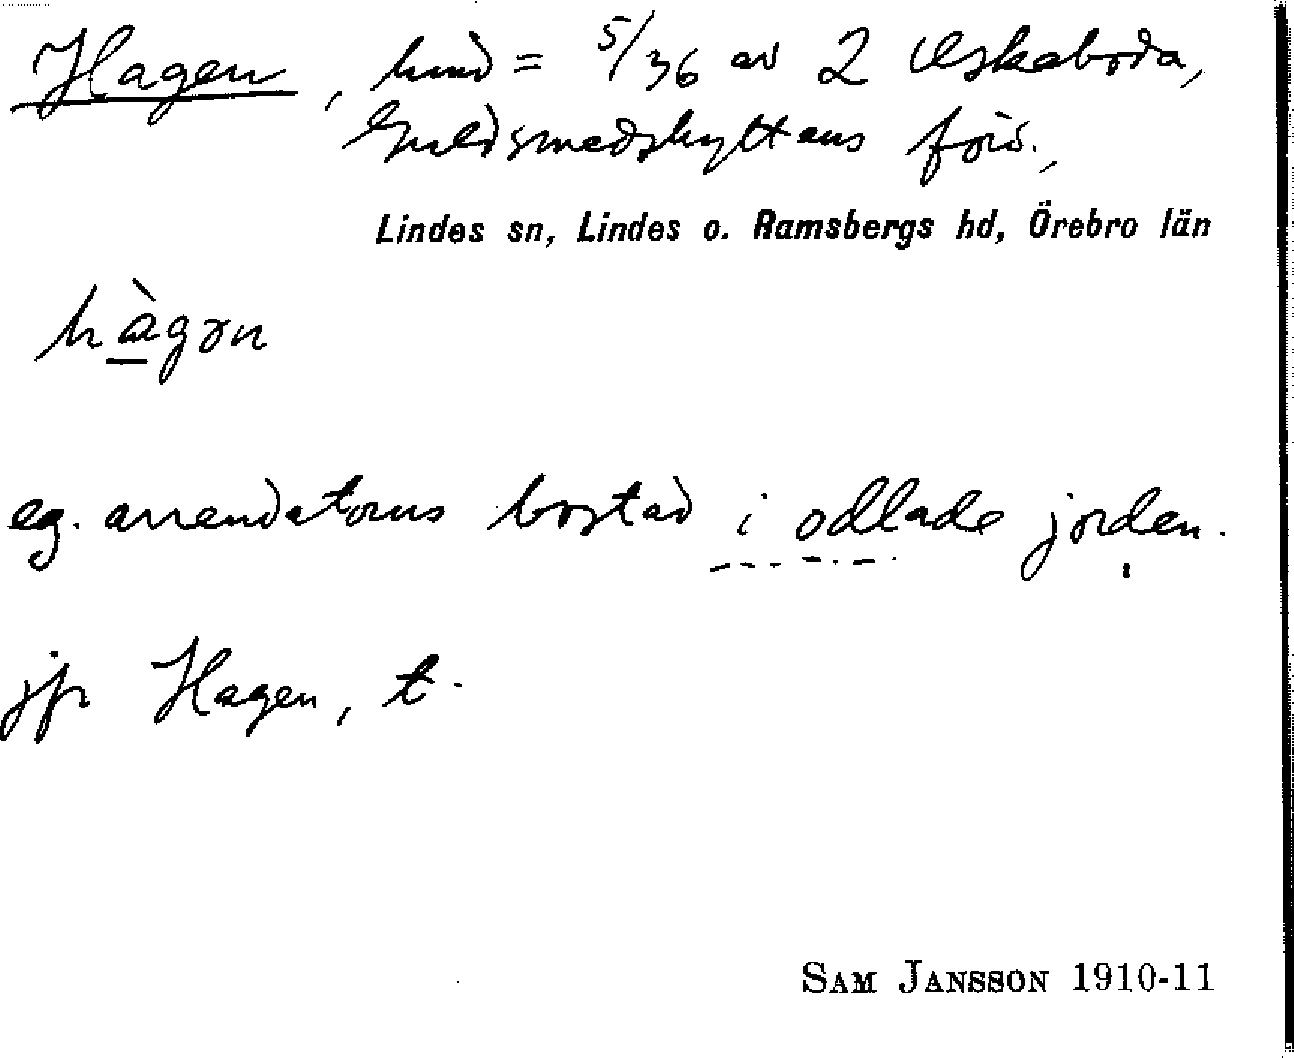 Hagen, hmd = 5/36 av 2 Öskaboda,
Guldsmedshyttans förs.,
Lindes sn, Lindes o. Ramsbergs hd, Örebro län
hàgɘn
eg. arrendatorns bostad i odlade jorden.
jfr Hagen, t.
SAM JANSSON 1910-11